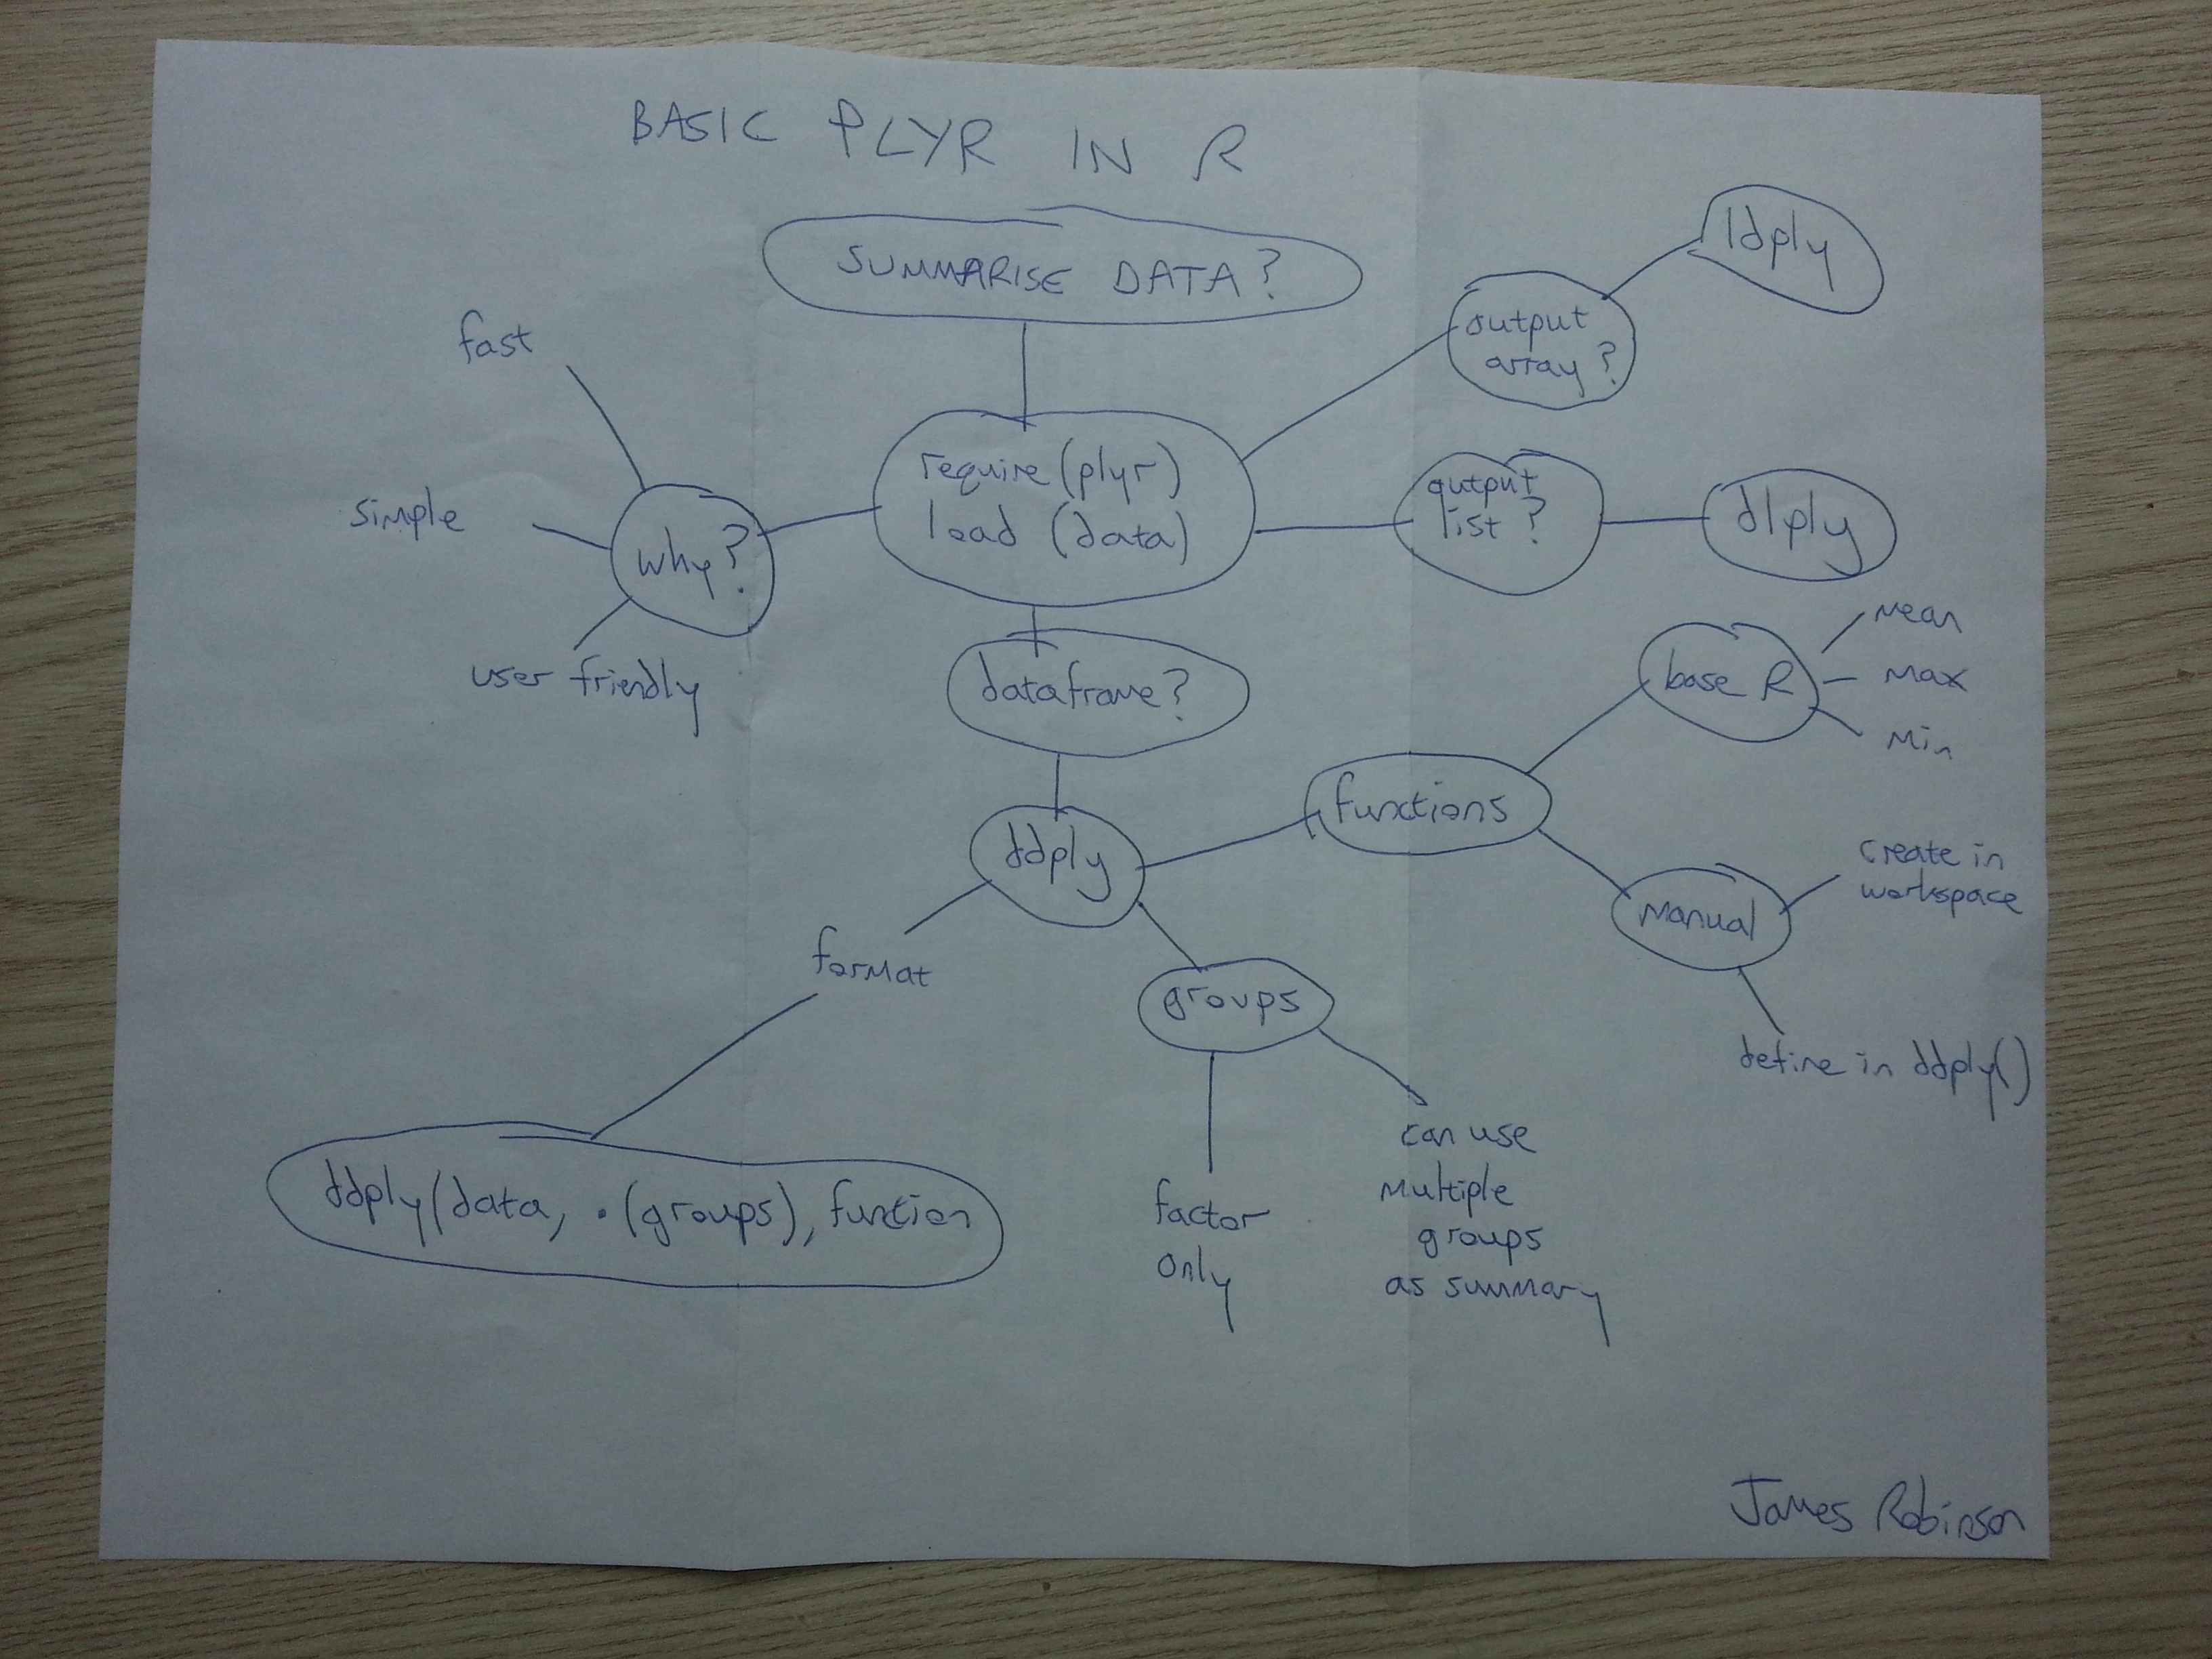 BASIC PLYR IN R
SUMMARISE DATA?
ldply
output
array?
fast
require(plyr)
load (data)
output
list?
dlply
simple
why?
user friendly
dataframe?
base R
mean
max
min
functions
ddply
manual
create in
workspace
define in ddply()
format
groups
ddply(data, .(groups), function
factor
only
can use
multiple
groups
as summary
James Robinson